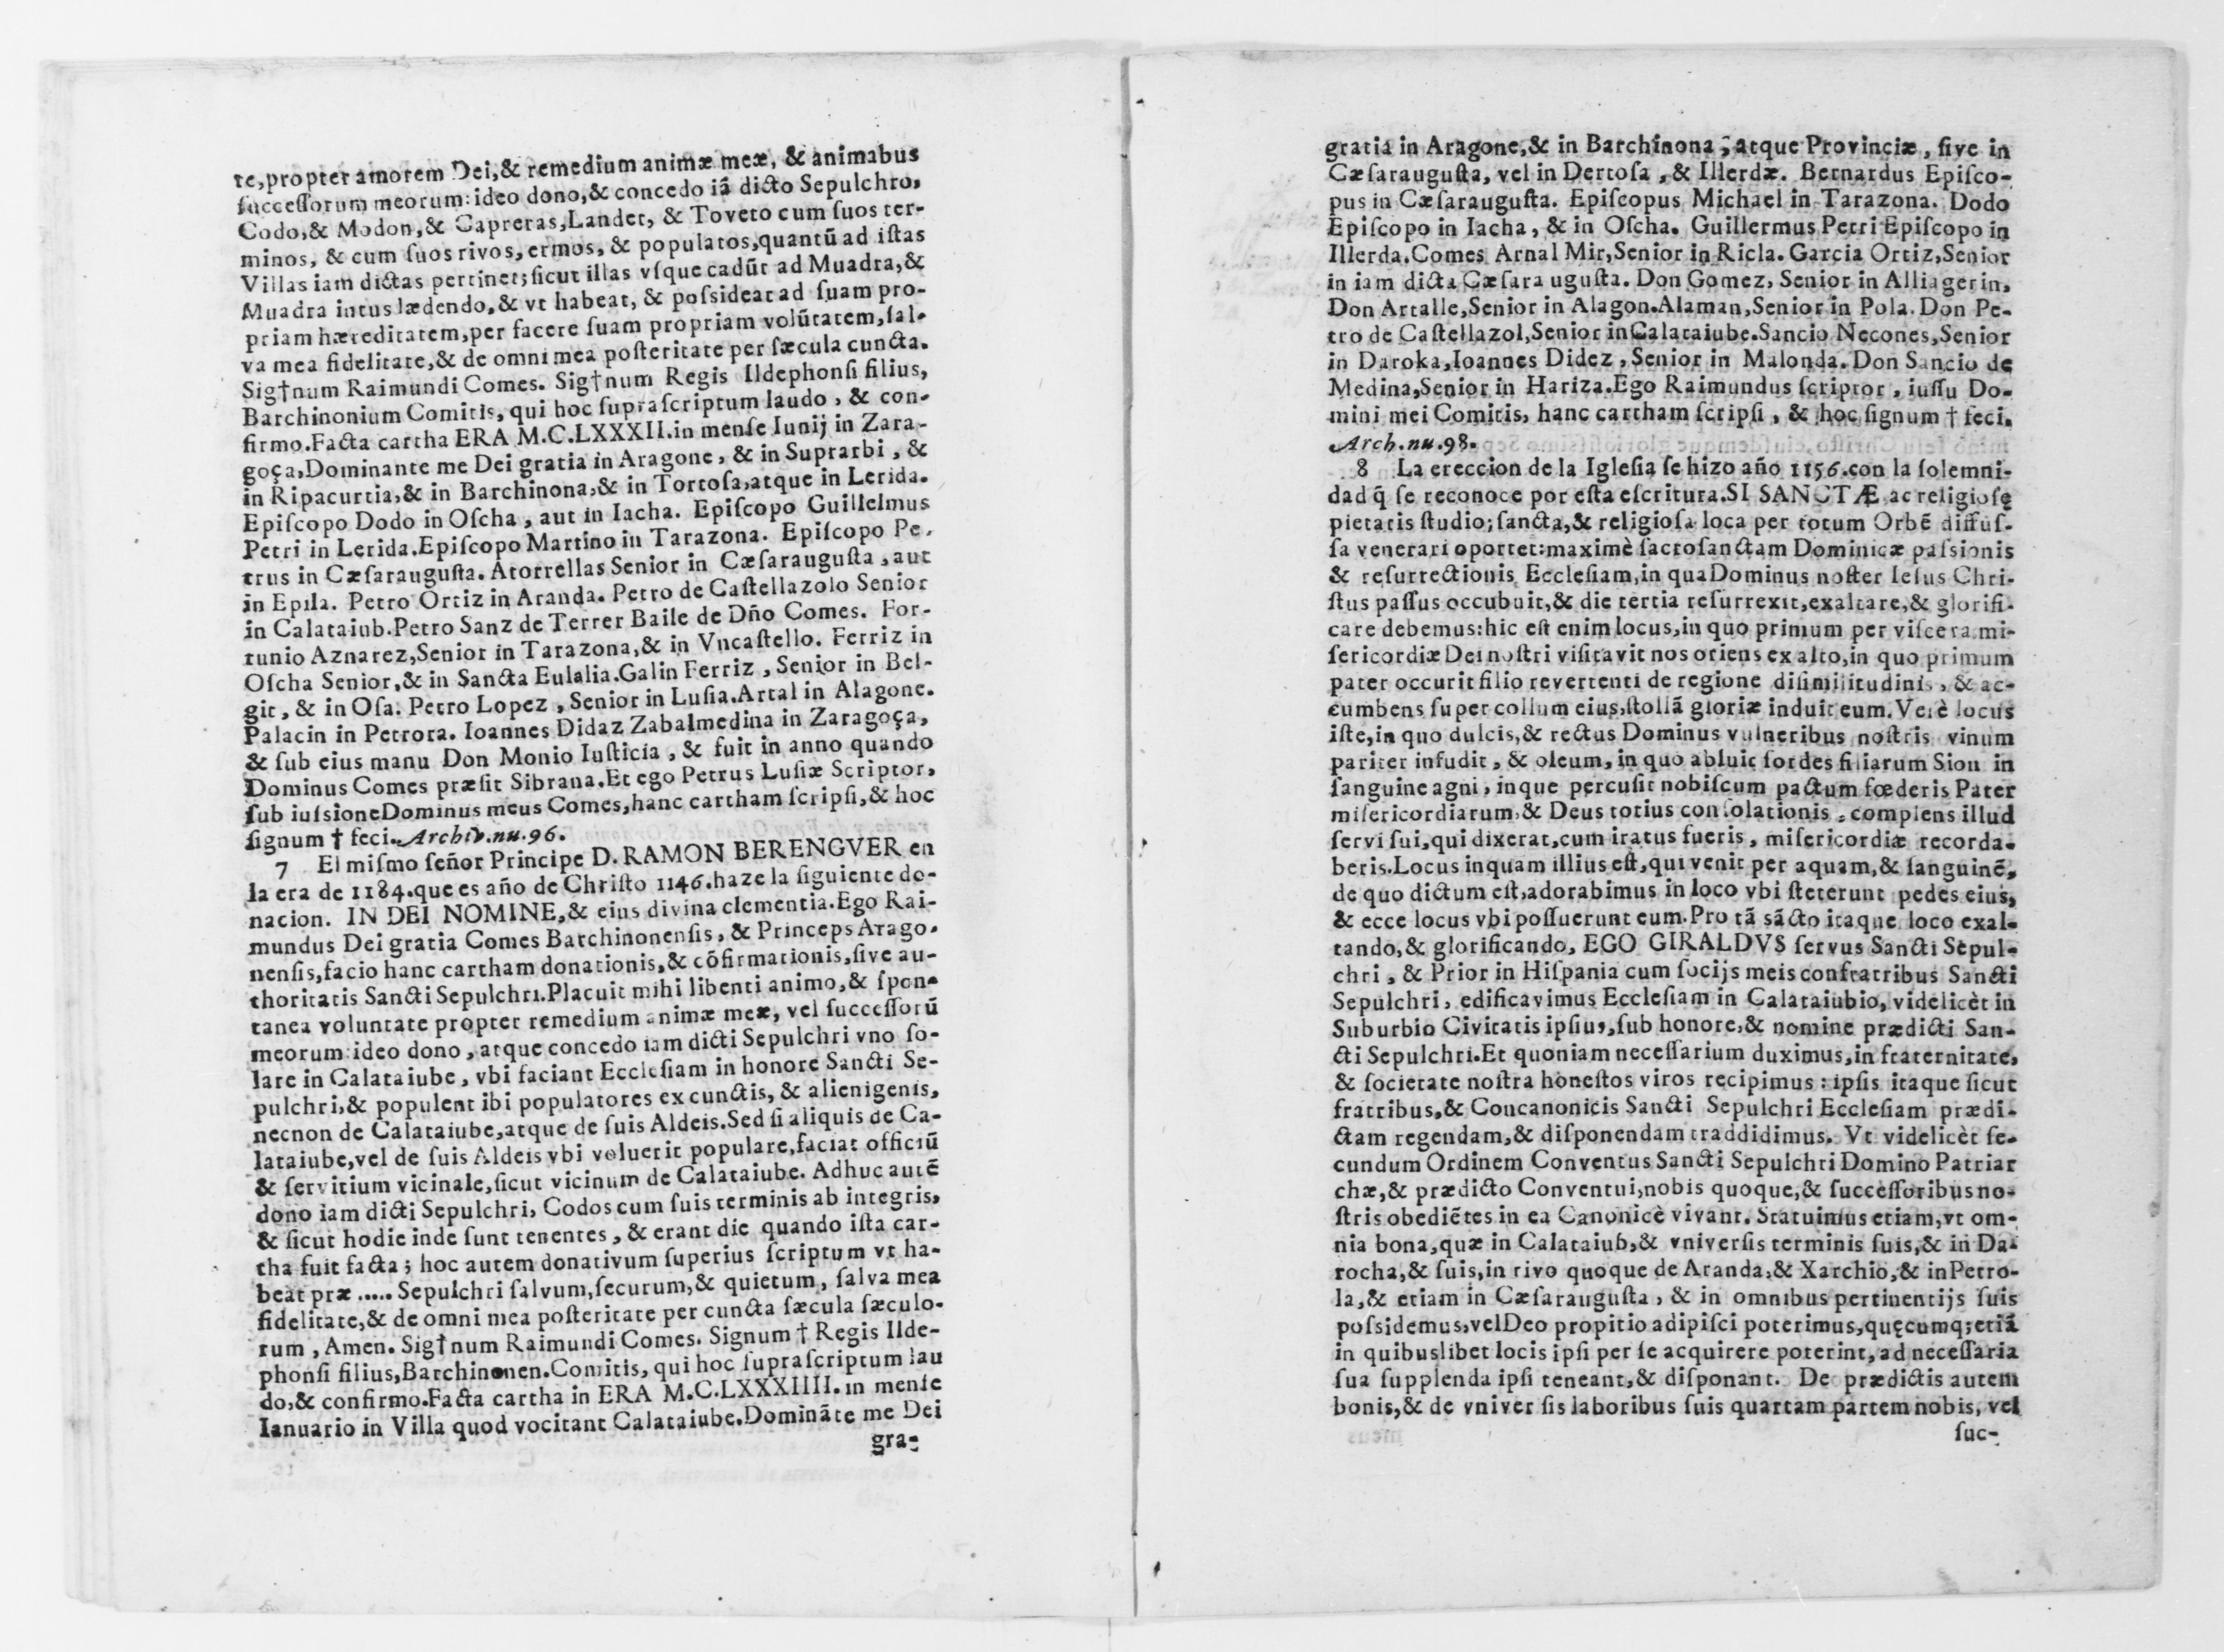 te,propter amorem Dei,& remedium animæ meæ, & animabus
ſucceſſorum meorum:ideo dono,& concedo iã dicto Sepulchro,
Codo,& Modon,& Capreras,Landet, & Toveto cum ſuos ter-
minos, & cum ſuos rivos, ermos, & populatos,quantũ ad iſtas
Villas iam dictas pertinet;ſicut illas vſque cadũt ad Muadra,&
Muadra intus lædendo,& vt habeat, & poſsideat ad ſuam pro-
priam hæreditatem,per facere ſuam propriam volũtatem,ſal-
va mea fidelitate,& de omni mea poſteritate per ſæcula cuncta.
Sig†num Raimundi Comes. Sig†num Regis Ildephonſi filius,
Barchinonium Comitis, qui hoc ſupraſcriptum laudo, & con-
firmo.Facta cartha ERA M.C.LXXXII.in menſe Iunij in Zara-
goça,Dominante me Dei gratia in Aragone, & in Suprarbi, &
in Ripacurtia,& in Barchinona,& in Tortoſa,atque in Lerida.
Epiſcopo Dodo in Oſcha, aut in Iacha. Epiſcopo Guillelmus
Petri in Lerida.Epiſcopo Martino in Tarazona. Epiſcopo Pe-
trus in Cæſarauguſta. Atorrellas Senior in Cæſarauguſta, aut
in Epila. Petro Ortiz in Aranda. Petro de Caſtellazolo Senior
in Calataiub.Petro Sanz de Terrer Baile de Dño Comes. For-
tunio Aznarez,Senior in Tarazona,& in Vncaſtello. Ferriz in
Oſcha Senior,& in Sancta Eulalia.Galin Ferriz, Senior in Bel-
git, & in Oſa. Petro Lopez, Senior in Luſia.Artal in Alagone.
Palacin in Petrora. Ioannes Didaz Zabalmedina in Zaragoça,
& ſub eius manu Don Monio Iuſticia, & fuit in anno quando
Dominus Comes præſit Sibrana.Et ego Petrus Luſiæ Scriptor,
ſub iuſsione Dominus meus Comes,hanc cartham ſcripſi,& hoc
ſignum † feci. Archiv.nu.96.
7 El miſmo ſeñor Principe D. RAMON BERENGVER en
la era de 1184.que es año de Chriſto 1146.haze la ſiguiente do-
nacion. IN DEI NOMINE,& eius divina clementia.Ego Rai-
mundus Dei gratia Comes Barchinonenſis, & Princeps Arago-
nenſis,facio hanc cartham donationis,& cõfirmationis,ſive au-
thoritatis Sancti Sepulchri.Placuit mihi libenti animo,& ſpon-
tanea voluntate propter remedium animæ meæ, vel ſucceſſorũ
meorum:ideo dono, atque concedo iam dicti Sepulchri vno ſo-
lare in Calataiube, vbi faciant Eccleſiam in honore Sancti Se-
pulchri,& populent ibi populatores ex cunctis, & alienigenis,
necnon de Calataiube,atque de ſuis Aldeis.Sed ſi aliquis de Ca-
lataiube,vel de ſuis Aldeis vbi voluerit populare,faciat officiũ
& ſervitium vicinale,ſicut vicinum de Calataiube. Adhuc autẽ
dono iam dicti Sepulchri, Codos cum ſuis terminis ab integris,
& ſicut hodie inde ſunt tenentes, & erant die quando iſta car-
tha fuit facta; hoc autem donativum ſuperius ſcriptum vt ha-
beat præ ..... Sepulchri ſalvum,ſecurum,& quietum, ſalva mea
fidelitate,& de omni mea poſteritate per cuncta ſæcula ſæculo-
rum, Amen. Sig†num Raimundi Comes. Signum † Regis Ilde-
phonſi filius,Barchinonen.Comitis, qui hoc ſupraſcriptum lau
do,& confirmo.Facta cartha in ERA M.C.LXXXIIII. in menſe
Ianuario in Villa quod vocitant Calataiube.Dominãte me Dei
gra-
gratia in Aragone,& in Barchinona; atque Provinciæ, ſive in
Cæſarauguſta, vel in Dertoſa, & Illerdæ. Bernardus Epiſco-
pus in Cæſarauguſta. Epiſcopus Michael in Tarazona. Dodo
Epiſcopo in Iacha, & in Oſcha. Guillermus Petri Epiſcopo in
Illerda.Comes Arnal Mir,Senior in Ricla. Garcia Ortiz,Senior
in iam dicta Cæſara uguſta. Don Gomez, Senior in Alliagerin,
Don Artalle,Senior in Alagon.Alaman,Senior in Pola. Don Pe-
tro de Caſtellazol,Senior in Calataiube.Sancio Necones,Senior
in Daroka,Ioannes Didez, Senior in Malonda. Don Sancio de
Medina,Senior in Hariza.Ego Raimundus ſcriptor, iuſſu Do-
mini mei Comitis, hanc cartham ſcripſi, & hoc ſignum † feci.
Arch.nu.98.
8 La ereccion de la Igleſia ſe hizo año 1156.con la ſolemni-
dad q̃ ſe reconoce por eſta eſcritura.SI SANCTÆ ac religioſę
pietatis ſtudio; ſancta,& religioſa loca per totum Orbẽ diffuſ-
ſa venerari oportet:maximè ſacroſanctam Dominicæ paſsionis
& reſurrectionis Eccleſiam,in qua Dominus noſter Ieſus Chri-
ſtus paſſus occubuit,& die tertia reſurrexit,exaltare,& glorifi-
care debemus:hic eſt enim locus,in quo primum per viſcera mi-
ſericordiæ Dei noſtri viſitavit nos oriens ex alto,in quo primum
pater occurit filio revertenti de regione diſimilitudinis, & ac-
cumbens ſuper collum eius,ſtollã gloriæ induit eum.Verè locus
iſte,in quo dulcis,& rectus Dominus vulneribus noſtris vinum
pariter infudit, & oleum, in quo abluit ſordes filiarum Sion in
ſanguine agni, inque percuſit nobiſcum pactum fœderis Pater
miſericordiarum,& Deus totius conſolationis, complens illud
ſervi ſui,qui dixerat,cum iratus fueris, miſericordiæ recorda-
beris.Locus inquam illius eſt,qui venit per aquam,& ſanguinẽ,
de quo dictum eſt,adorabimus in loco vbi ſteterunt pedes eius,
& ecce locus vbi poſſuerunt eum.Pro tã sãcto itaque loco exal-
tando,& glorificando, EGO GIRALDVS ſervus Sancti Sepul-
chri, & Prior in Hiſpania cum ſocijs meis confratribus Sancti
Sepulchri, edificavimus Eccleſiam in Calataiubio, videlicèt in
Suburbio Civitatis ipſius,ſub honore,& nomine prædicti San-
cti Sepulchri.Et quoniam neceſſarium duximus,in fraternitate,
& ſocietate noſtra honeſtos viros recipimus: ipſis itaque ſicut
fratribus,& Concanonicis Sancti Sepulchri Eccleſiam prædi-
ctam regendam,& diſponendam traddidimus. Vt videlicèt ſe-
cundum Ordinem Conventus Sancti Sepulchri Domino Patriar
chæ,& prædicto Conventui,nobis quoque,& ſucceſſoribus no-
ſtris obediẽtes in ea Canonicè vivant. Statuimus etiam,vt om-
nia bona,quæ in Calataiub,& vniverſis terminis ſuis,& in Da-
rocha,& ſuis,in rivo quoque de Aranda,& Xarchio,& in Petro-
la,& etiam in Cæſarauguſta, & in omnibus pertinentijs ſuis
poſsidemus,vel Deo propitio adipiſci poterimus,quęcumq; etiã
in quibuslibet locis ipſi per ſe acquirere poterint,ad neceſſaria
ſua ſupplenda ipſi teneant,& diſponant. De prædictis autem
bonis,& de vniver ſis laboribus ſuis quartam partem nobis, vel
ſuc-